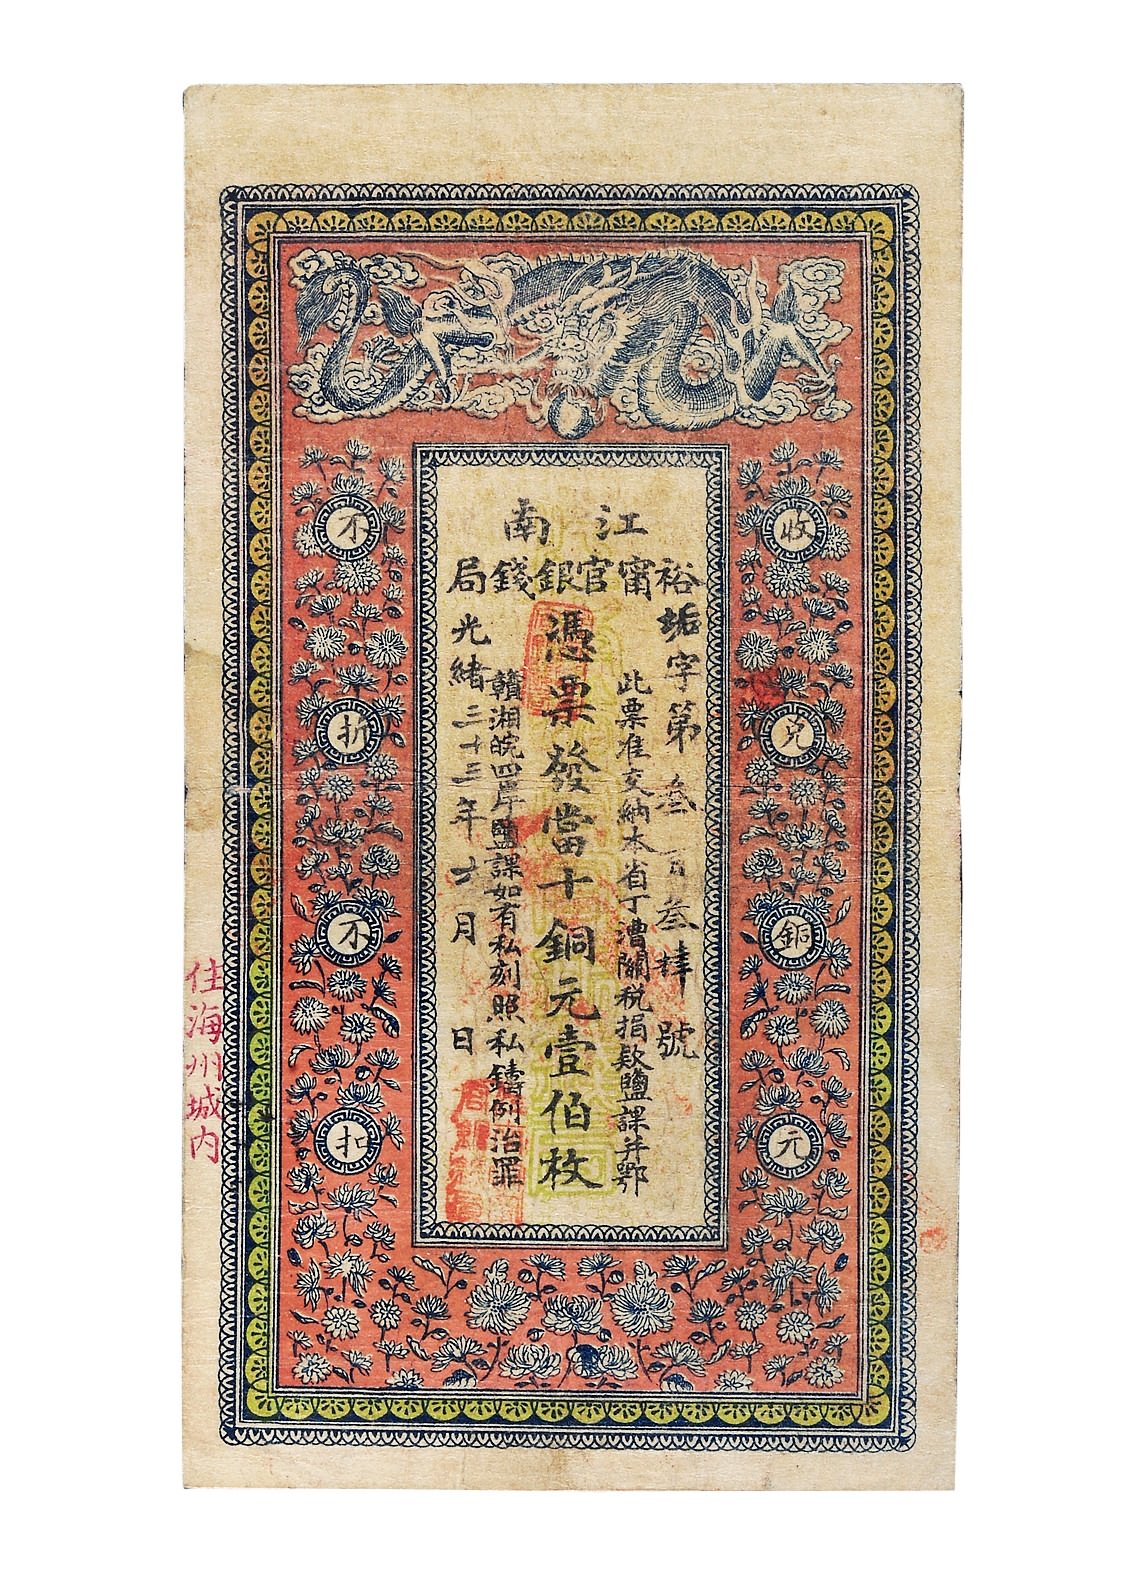 江南
裕甯官銀錢局
垢字第叁百叁肆號
此票准交納本省丁漕關稅捐款鹽課并鄂
憑票發當十銅元壹伯枚
贛湘皖四岸鹽課如有私刻照私鑄例治罪
光緒三十三年 月 日
收兌銅元
不折不扣
住海州城内